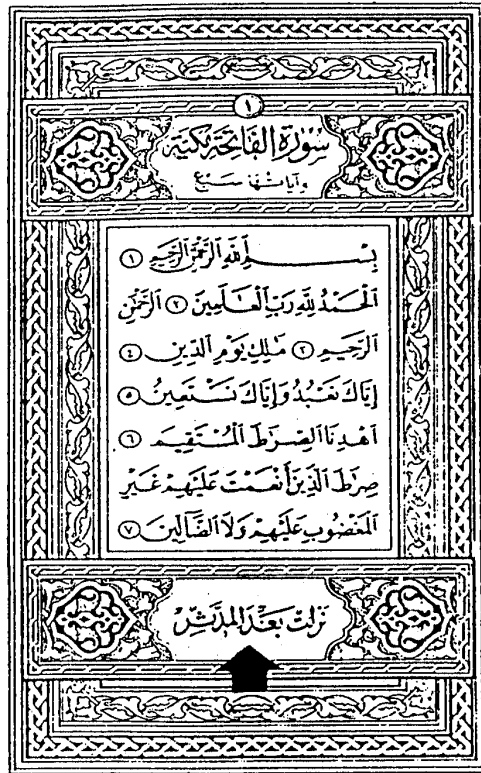 ١
سُورَة الفَاتِحَة مَكيَّة
وآياتها سَبْع
بِسْمِ اللَّهِ الرَّحْمَٰنِ الرَّحِيمِ ١
الْحَمْدُ لِلَّهِ رَبِّ الْعَٰلَمِينَ ٢ الرَّحْمَٰنِ
الرَّحِيمِ ٣ مَٰلِكِ يَوْمِ الدِّينِ ٤
إِيَّاكَ نَعْبُدُ وَإِيَّاكَ نَسْتَعِينُ ٥
اهْدِنَا الصِّرَٰطَ الْمُسْتَقِيمَ ٦
صِرَٰطَ الَّذِينَ أَنْعَمْتَ عَلَيْهِمْ غَيْرِ
الْمَغْضُوبِ عَلَيْهِمْ وَلَا الضَّالِّينَ ٧
نزلت بَعْد المدَّثِّر